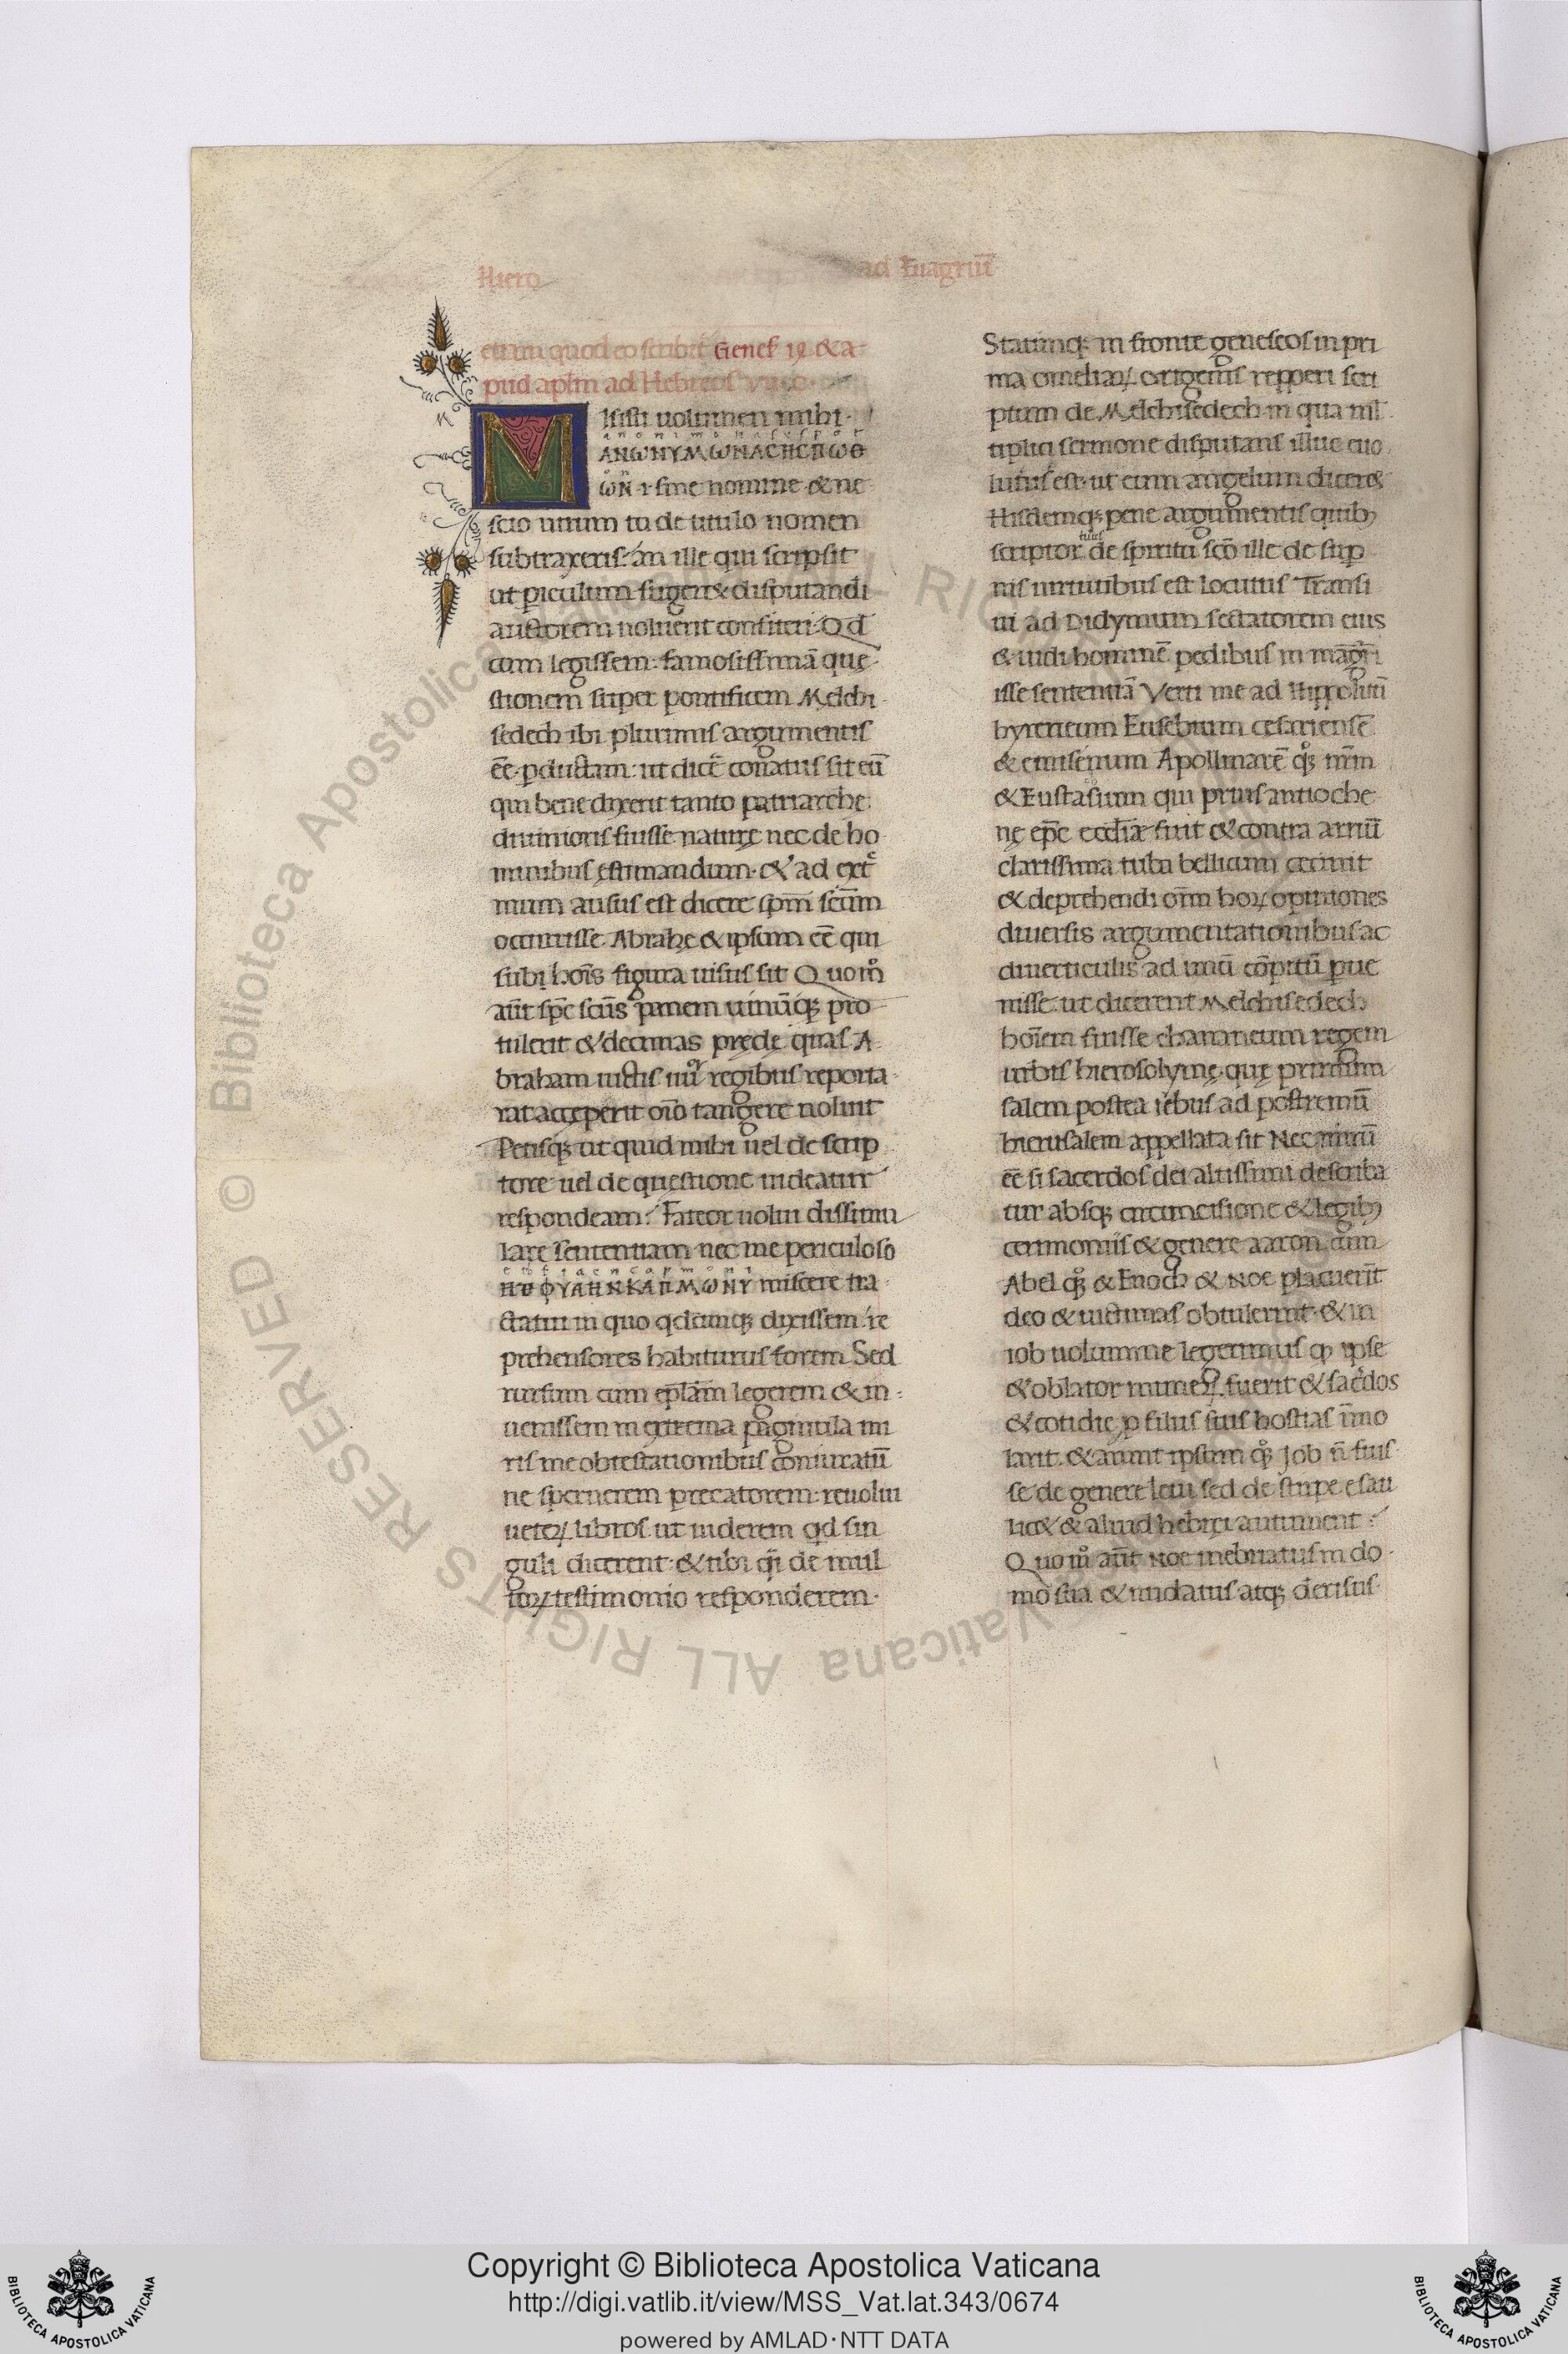 Hiero ad Euagriū
etiam quod eo scribit Genes 19 & a
pud aplm ad Hebreos
Misisti uolumen mihi.
anonimonasespor
ΑΝΩΝΥΜΩΝΑСΠСΠΩΘ
ΩΝ .i. sine nomine. & ne
scio utrum tu de titulo nomen
subtraxeris. an ille qui scripsit
ut piculum fugeret disputandi
auctorem noluerit confiteri. Qd
cum legissem: famosissimā quę
stionem super pontificem Melchi
sedech ibi plurimis argumentis
eē pductam: ut dicē conatus sit eū
qui benedixerit tanto patriarche
diuinioris fuisse naturę nec de ho
minibus ęstimandum. & ad ext
mum ausus est dicere spm scūm
occurrisse Abrahę & ipsum eē qui
sub hoīs figura uisus sit Quom
aūt spē scūs panem uinūq; pro
tulerit & decimas prędę quas A
braham uictis iiii regibus reporta
rat acceperit oīo tangere noluit
Petisq; ut quid mihi uel de scrip
tore uel de questione uideatur
respondeam: Fateor uolui dissimu
lare sententiam nec me periculoso
ΠΦΦΥΛΗΝΚΑΠΜΩΝΥ miscere tra
ctatui in quo qdcumq; dixissem: re
prehensores habiturus forem Sed
rursum cum eplām legerem & in
uenissem in extrema paginula mi
ris me obtestationibus coniuratū
ne spernerem precatorem: reuolui
ueteꝝ libros ut uiderem qd sin
guli dicerent: & tibi qi de mul
toꝝ testimonio responderem.
Statimq; in fronte geneseos in pri
ma omeliaꝝ origenis repperi scri
ptum de Melchisedech in qua ml
tiplici sermone disputans illuc euo
lutus est. ut eum angelum diceret
Hisdemq; pene argumentis quib;
tuus
scriptor de spiritu scō ille de sup
nis uirtutibus est locutus Transi
ui ad Didymum sectatorem eius
& uidi hominē pedibus in magri
isse sententiā Verti me ad Hippolitū
hyreneum Eusebium cesariensē
& emisenum Apollinarē q; nrm
& Eustasium qui prius antioche
nę epē ecclīæ fuit & contra arriū
clarissima tuba bellicum cecinit
& deprehendi oīm hoꝝ opiniones
diuersis argumentationibus ac
diuerticulis ad unū cōpitū pue
nisse. ut dicerent Melchisedech
hoīem fuisse chananeum regem
urbis hierosolymę. quę primum
salem postea iebus ad postremū
hierusalem appellata sit Nec mirū
eē si sacerdos dei altissimi describa
tur absq; circumcisione & legib;
cerimoniis & genere aaron. cum
Abel q; & Enoch & Noe placuerīt
deo & uictimas obtulerint. & in
iob uolumine legerimus ꝙ ipse
& oblator muneꝝ fuerit & sacdos
& cotidie p filiis suis hostias īmo
larit. & aiunt ipsum q; Job n̄ fuis
se de genere leui sed de stirpe esau
licet & aliud hebręi autument:
Quom aūt Noe inebriatus in do
mo sua & nudatus atq; derisus
Copyright © Biblioteca Apostolica Vaticana
http://digi.vatlib.it/view/MSS_Vat.lat.343/0674
powered by AMLAD·NTT DATA
BIBLIOTECA APOSTOLICA VATICANA
BIBLIOTECA APOSTOLICA VATICANA
© Biblioteca Apostolica Vaticana ALL RIGHTS RESERVED